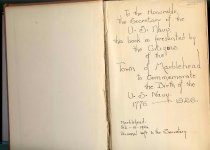 To the Honorable,
The Secretary of the
U. S. Navy
this book is presented by
the Citizens
of the
Town of Marblehead
to Commemorate
the Birth of the
U. S. Navy.
1775 — 1926.
Marblehead.
to the Secretary